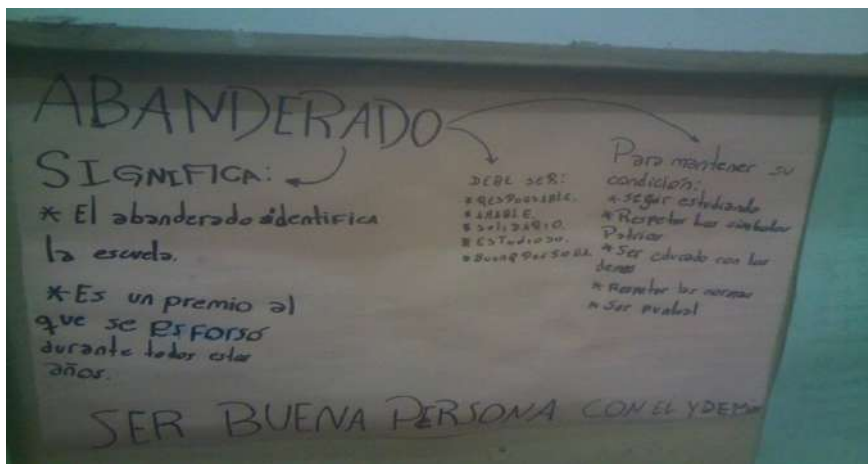 ABANDERADO
SIGNIFICA:
* El abanderado identifica
la escuela.
* Es un premio al
que se esforsó
durante todos estos
años.
DEBE SER:
* RESPONSABLE.
* AMABLE.
* SOLIDARIO.
* ESTUDIOSO.
* BUENA PERSONA.
Para mantener su
condición:
* seguir estudiando
* Respetar los símbolos
Patrios
* Ser educado con los
demas
* Respetar las normas
* Ser puntual
SER BUENA PERSONA CON EL Y DEMÁS